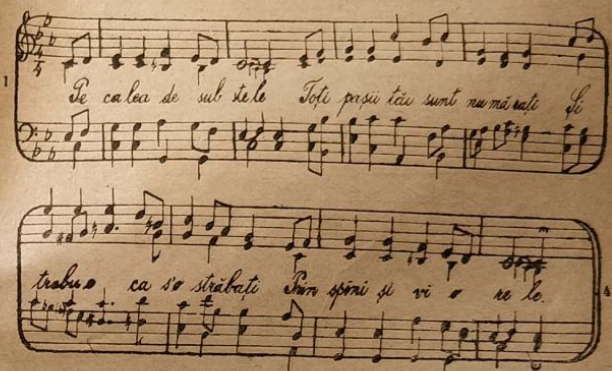 1
Pe calea de sub stele Toți pașii tăi sunt nu mă rați Și
trebuie ca s'o străbați Prin spini și vi o re le.